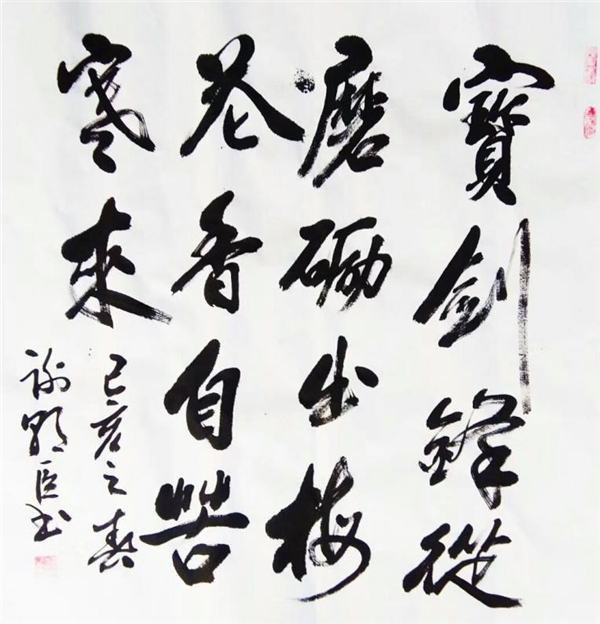 寶劍鋒從
磨礪出梅
花香自苦
寒來
己亥之春
謝朝臣書